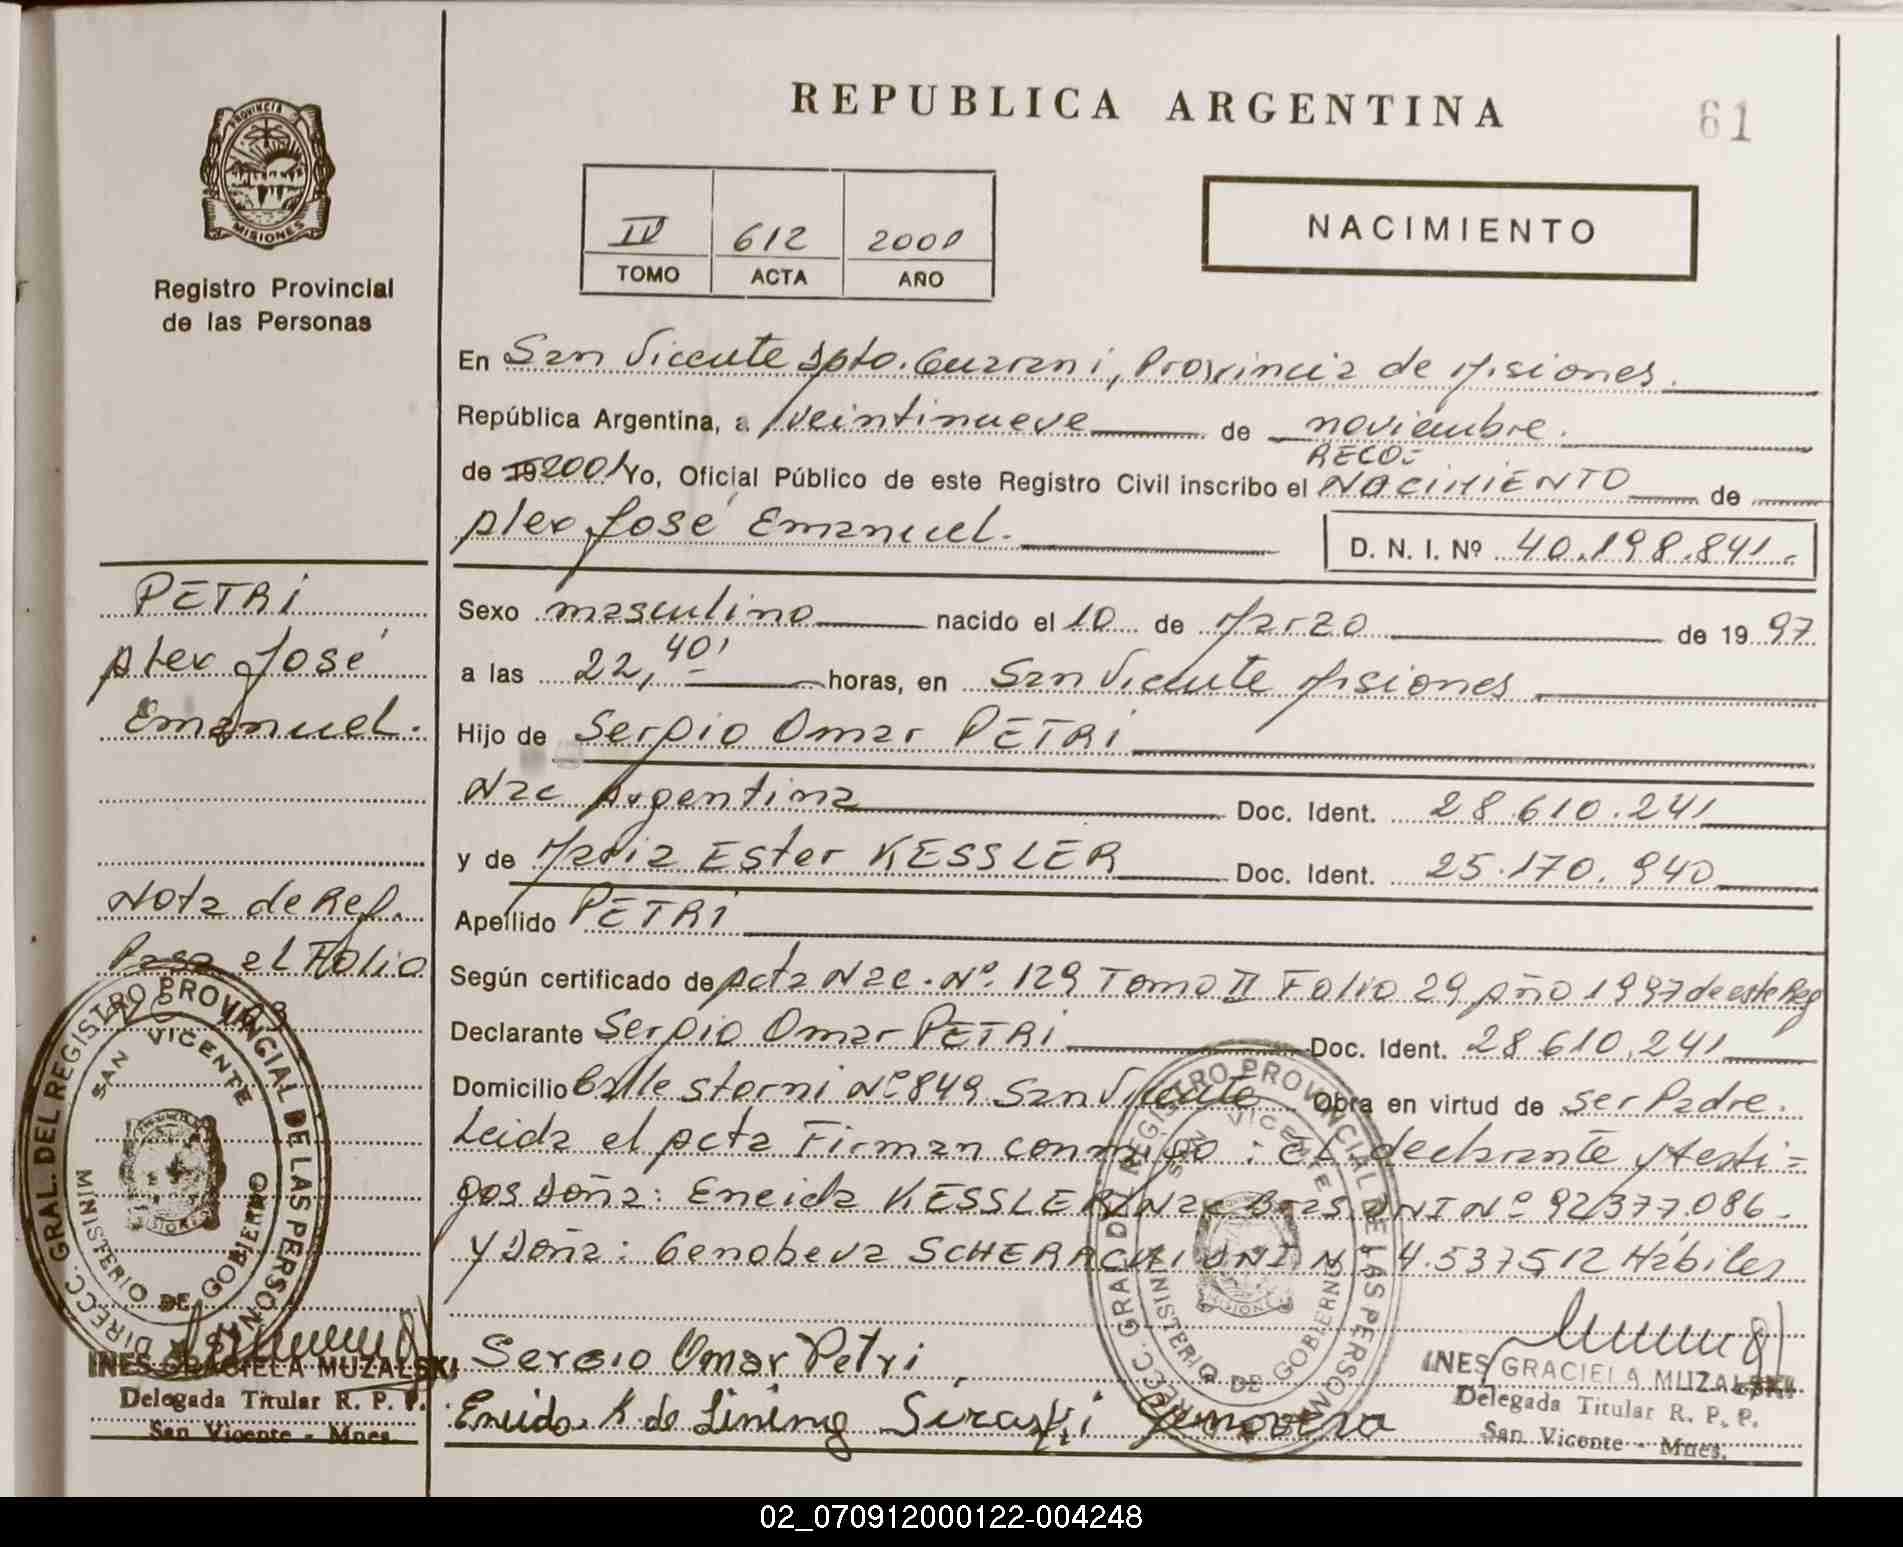 REPUBLICA ARGENTINA
61
PROVINCIA
MISIONES
Registro Provincial
de las Personas
IV 612 2001
TOMO ACTA AÑO
NACIMIENTO
En San Vicente Dpto. Guarani, Provincia de Misiones.
República Argentina, a veintinueve de noviembre.
de 19 2001 Yo, Oficial Público de este Registro Civil inscribo el RECO= NACIMIENTO de
Alex José Emanuel.
D. N. I. Nº 40.198.841.
PETRI
Alex José
Emanuel.
Sexo masculino nacido el 10 de Marzo de 19 97
a las 22,40' horas, en San Vicente Misiones
Hijo de Sergio Omar PETRI
Nac Argentina Doc. Ident. 28.610.241
y de Maria Ester KESSLER Doc. Ident. 25.170.940
Apellido PETRI
Nota de Ref.
Pasa al Folio
Según certificado de Acta Nac. Nº 129 Tomo II Folio 29 Año 1997 de este Reg
Declarante Sergio Omar PETRI Doc. Ident. 28.610.241
Domicilio Calle Storni Nº 849 San Vicente Obra en virtud de ser Padre.
Leida el Acta Firman conmigo: El declarante y testi=
gos Doña: Eneida KESSLER Nac Bras DNI Nº 92377.086.
y Doña: Genobeva DNI Nº 4.537512 Hábiles
DIRECC. GRAL. DEL REGISTRO PROVINCIAL DE LAS PERSONAS
SAN VICENTE
MINISTERIO DE GOBIERNO
DIRECC. GRAL. DEL REGISTRO PROVINCIAL DE LAS PERSONAS
SAN VICENTE
MINISTERIO DE GOBIERNO
MISIONES
Sergio Omar Petri
Eneida K de Lining Genoveva
INES GRACIELA MUZALSKI
Delegada Titular R. P. P.
San Vicente - Mnes.
INES GRACIELA MUZALSKI
Delegada Titular R. P. P.
San Vicente - Mnes.
02_070912000122-004248